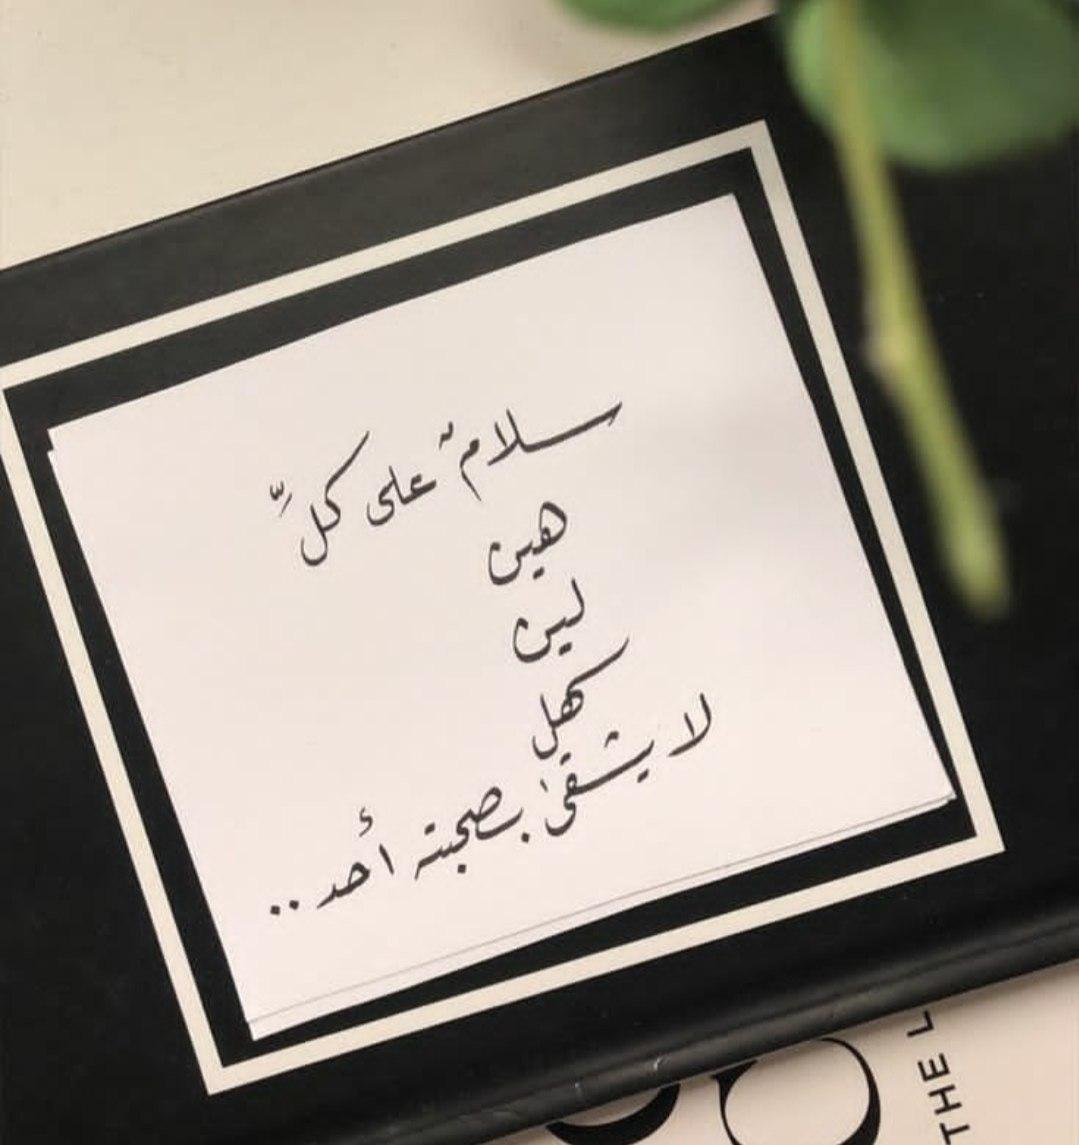 سلامٌ على كلِّ
هين
لين
سهل
لا يشقىٰ بصحبته أحد..
THE L